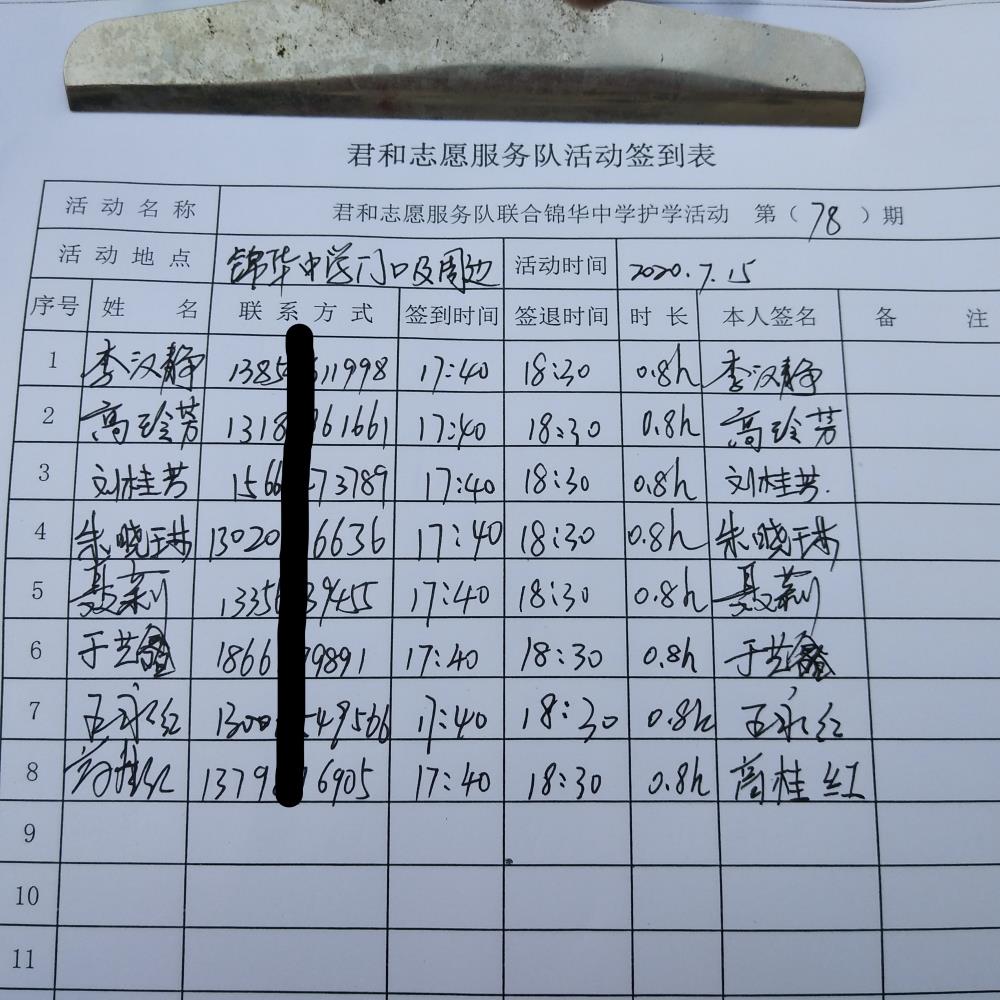 君和志愿服务队活动签到表
活动名称 君和志愿服务队联合锦华中学护学活动 第（78）期
活动地点 锦华中学门口及周边 活动时间 2020.7.15
序号 姓名 联系方式 签到时间 签退时间 时长 本人签名 备注
1 李汉静 1385 11998 17:40 18:30 0.8h 李汉静
2 高玲芳 1318 61661 17:40 18:30 0.8h 高玲芳
3 刘桂芳 1566 73789 17:40 18:30 0.8h 刘桂芳
4 朱晓琳 13020 6636 17:40 18:30 0.8h 朱晓琳
5 聂莉 1335 39455 17:40 18:30 0.8h 聂莉
6 于兰 1866 9891 17:40 18:30 0.8h 于兰
7 王永红 1300 549566 17:40 18:30 0.8h 王永红
8 高桂红 1379 6905 17:40 18:30 0.8h 高桂红
9
10
11